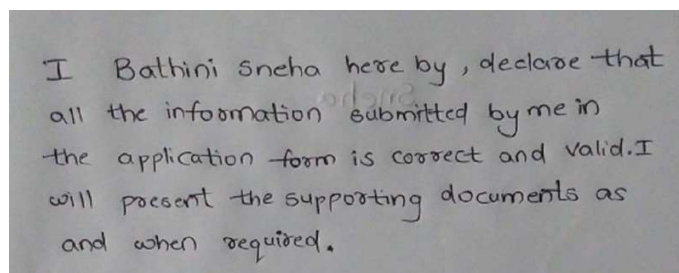 I Bathini Sneha here by, declare that
all the information submitted by me in
the application form is correct and valid. I
will present the supporting documents as
and when required.